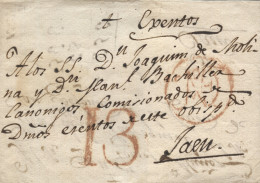 + Exentos
A los SS.res D.n Joaquim de Moli-
na y D.n Man.l Bachiller
Canonigos Comisionados de
Dmos exentos de este obispd.o
Jaen
13